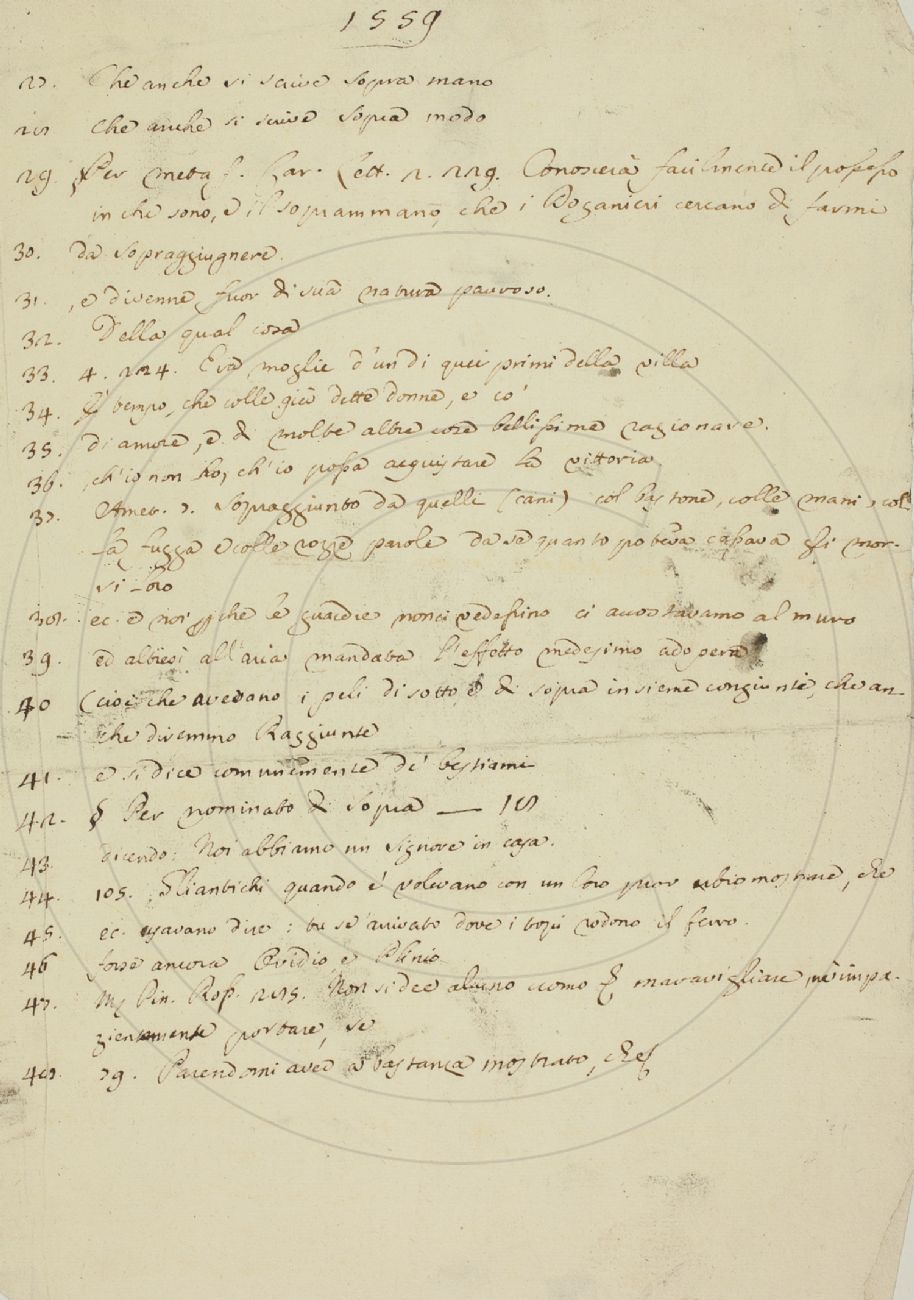 1559
27. Che anche si scrive sopra mano
28 Che anche si scrive sopra modo
29 Per metaf. Car. Lett. 2. 229. Conoscerà facilmente il possesso
in che sono, e il soprammano, che i Doganieri cercano di farmi
30. da sopraggiugnere.
31. , e divenne fuor di sua natura pauroso.
32. Della qual cosa
33. 4. 224. Era moglie d'un di quei primi della villa
34. tempo, che colle già dette donne, e co'
35. di amore, e di molte altre cose bellissime ragionare.
36. , ch'io non ho, ch'io possa acquistare la vittoria
37. Amet. 7. Sopraggiunto da quelli (cani) col bastone, colle mani, col
la fugga e colle rozze parole da se quanto poteva cassava gli mor-
si loro
38. ec. e noi che le guardie non ci vedessino ci accostavamo al muro
39. ed altresì all'aria mandata l'effetto medesimo adopera
40 (cioè che avevano i peli di sotto, e di sopra insieme congiunti, che an-
che diremmo Raggiunte
41. e si dice comunemente de' bestiami
42. § Per nominato di sopra — 18
43. dicendo: Noi abbiamo un signore in casa.
44. 105. Gli antichi quando e' volevano con un loro mostrare, che
45. ec. usavano dire: tu se' arrivato dove i topi rodono il ferro.
46 forse ancora Ovidio, e Plinio
47. M. Pin. Rop. 215. Non si dee alcuno uomo maravigliare, nè impa-
zientemente portare, se
48. 79. Parendomi aver a bastanza mostrato, che